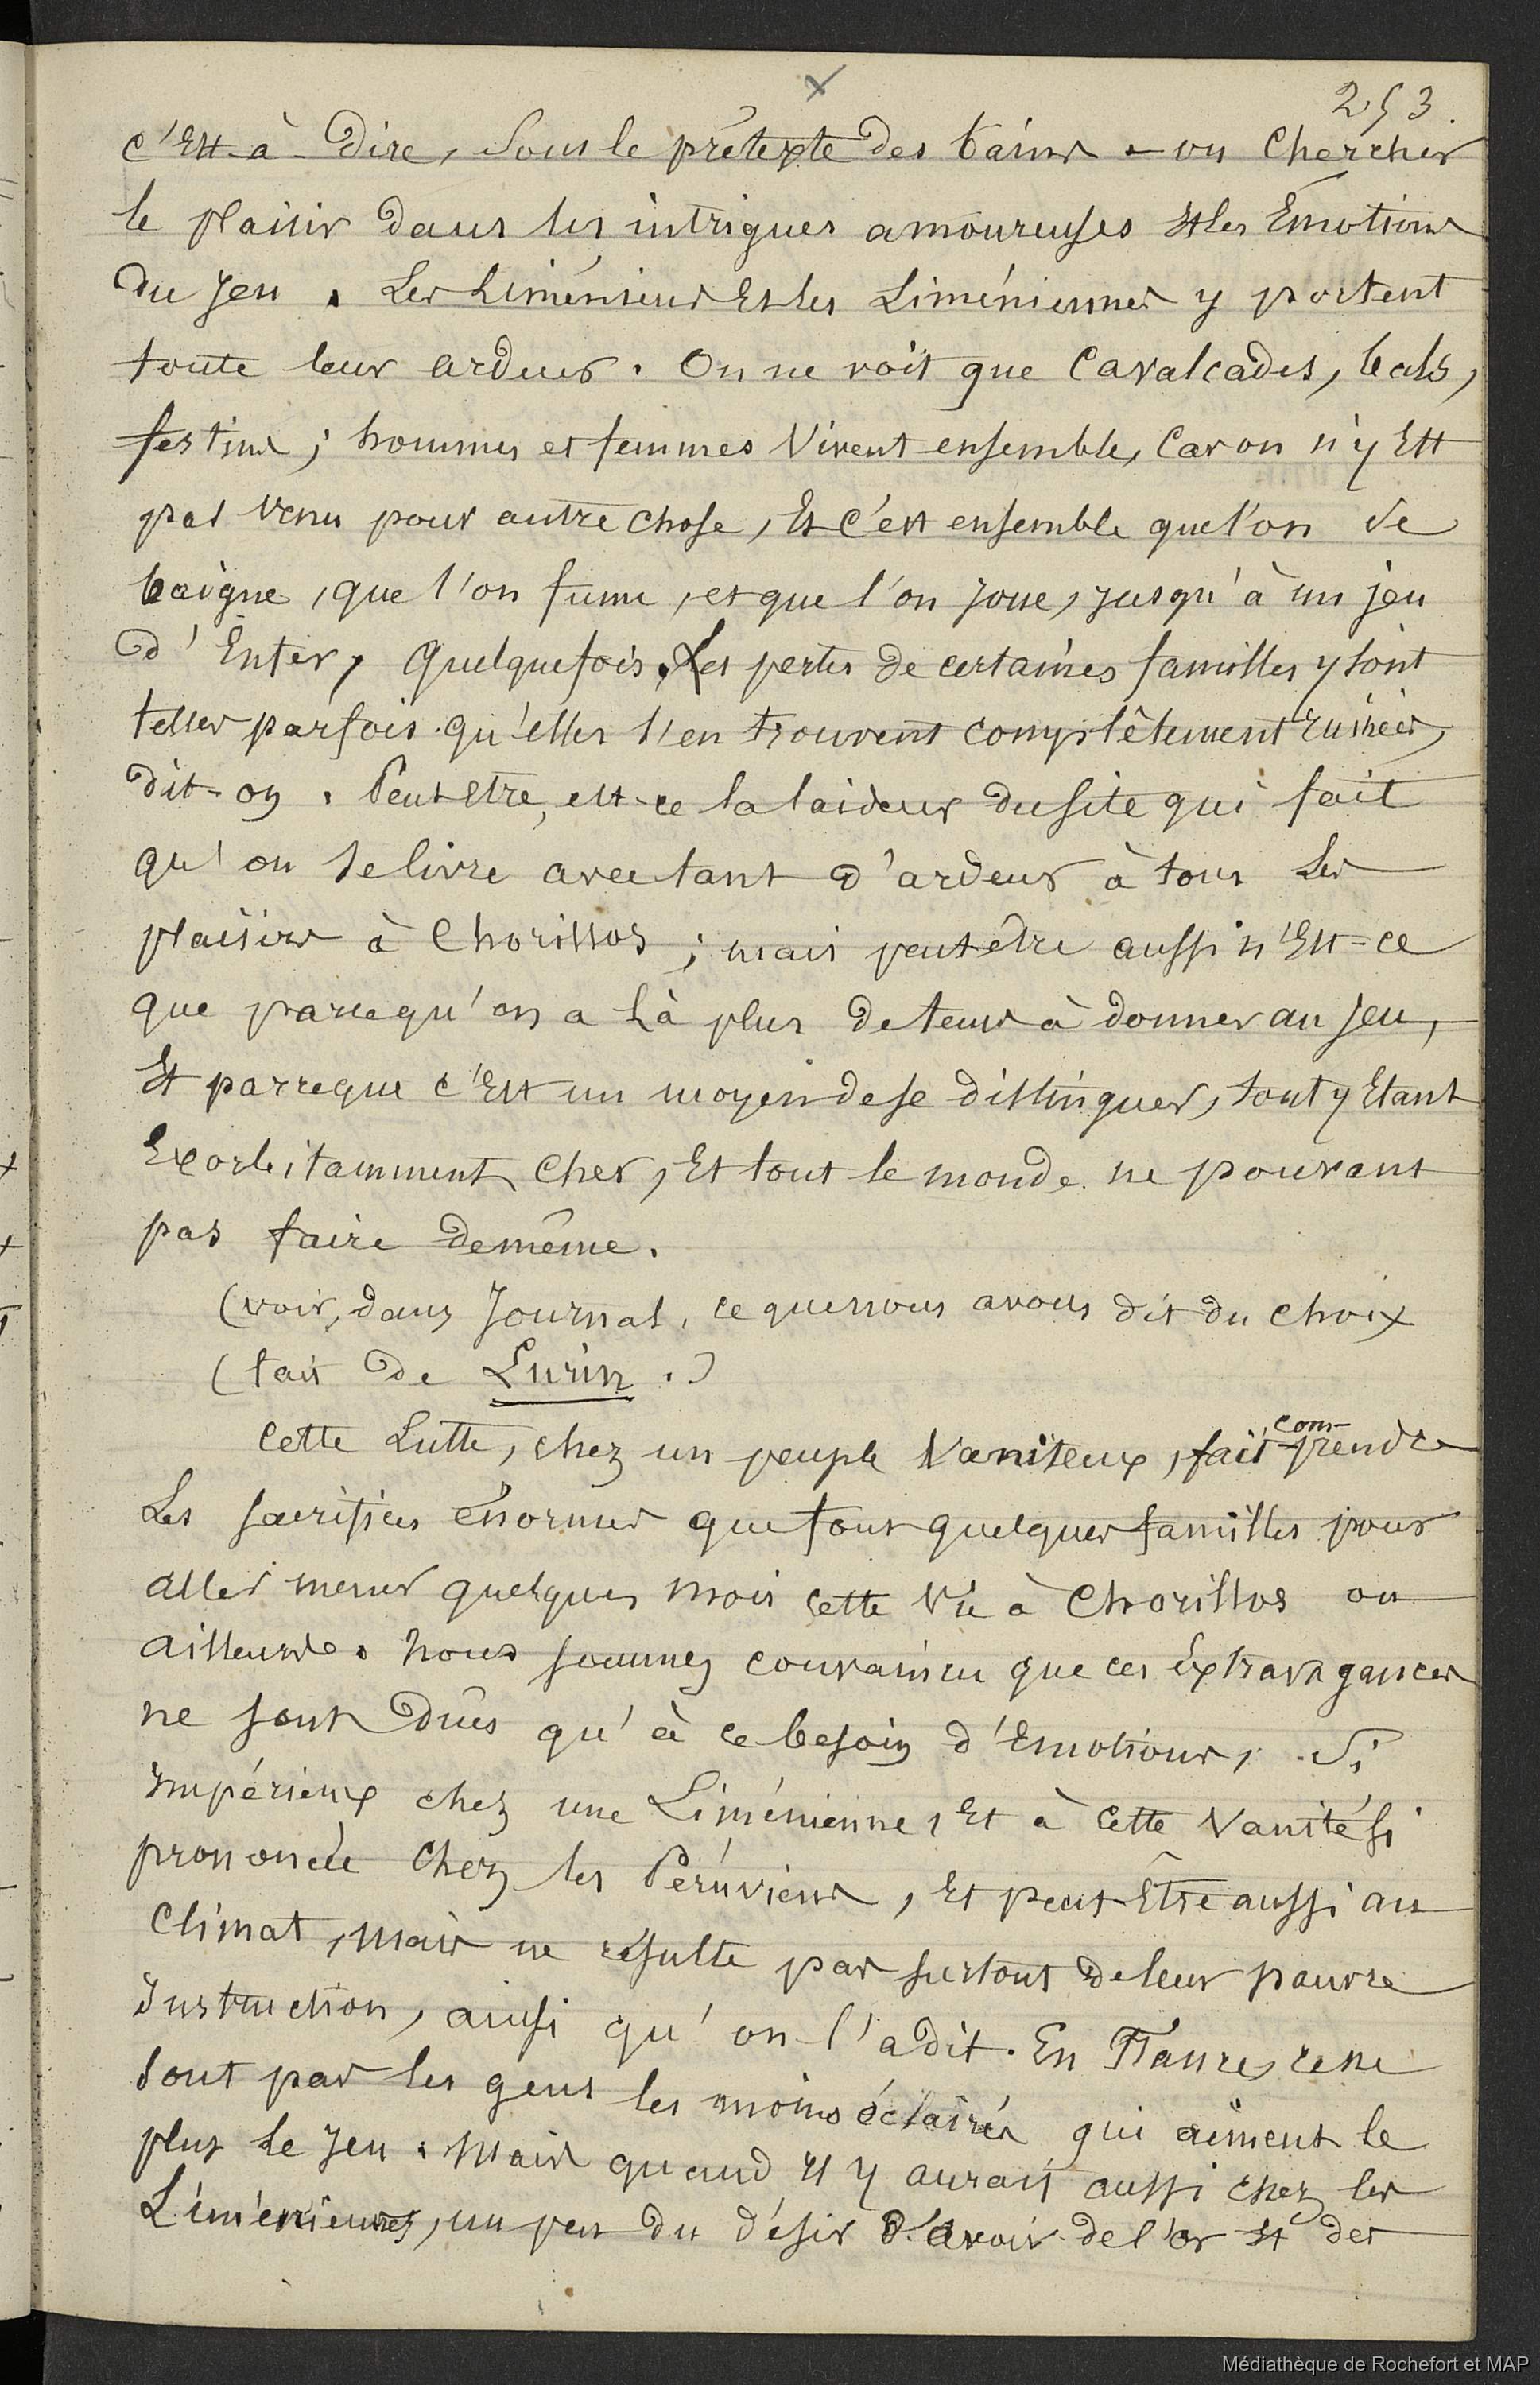 253.
c'est-à-dire, sous le prétexte des bains - ou chercher
le plaisir dans les intrigues amoureuses et les Émotions
du jeu. Les Liméniens et les Liméniennes y portent
toute leur ardeur. On ne voit que Cavalcades, bals,
festins; hommes et femmes vivent ensemble, Car on n'y Est
pas venu pour autre chose, Et c'est ensemble que l'on se
baigne, que l'on fume, et que l'on joue, jusqu'à un jeu
d'Enfer, quelquefois. Les pertes de certaines familles y sont
telles parfois qu'elles s'en trouvent complêtement ruinées,
dit-on. Peut-etre, est-ce la laideur du site qui fait
qu'on se livre avec tant d'ardeur à tous les
plaisirs à Chorillos; mais peut-être aussi n'Est-ce
que parcequ'on a Là plus de tems à donner au jeu,
Et parceque c'Est un moyen de se distinguer, tout y Etant
Exorbitamment cher, Et tout le monde ne pouvant
pas faire de même.
(voir, dans Journal, ce que nous avons dit du choix
(fait de Lurin.)
Cette Lutte, chez un peuple Vaniteux, fait com-
prendre
Les sacrifices énormes que font quelques familles pour
aller mener quelques mois cette vie à Chorillos ou
ailleurs. Nous sommes convaincu que ces Extravagances
ne sont dûes qu'à ce besoin d'Emotions, si
impérieux chez une Liménienne, Et à cette vanité si
prononcée chez les Péruviens, Et peut-Être aussi au
Climat, mais ne résulte pas surtout de leur pauvre
Instruction, ainsi qu'on l'a dit. En France, ce ne
sont pas les gens les moins éclairés qui aiment le
plus le jeu. Mais quand il y aurait aussi chez les
Liméniennes, un peu du désir d'avoir de l'or et des
Médiathèque de Rochefort et MAP